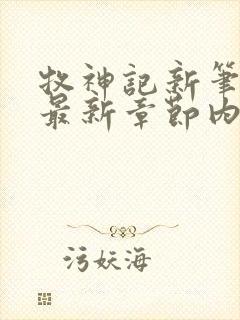 牧神記新筆
最新章節內
污妖海